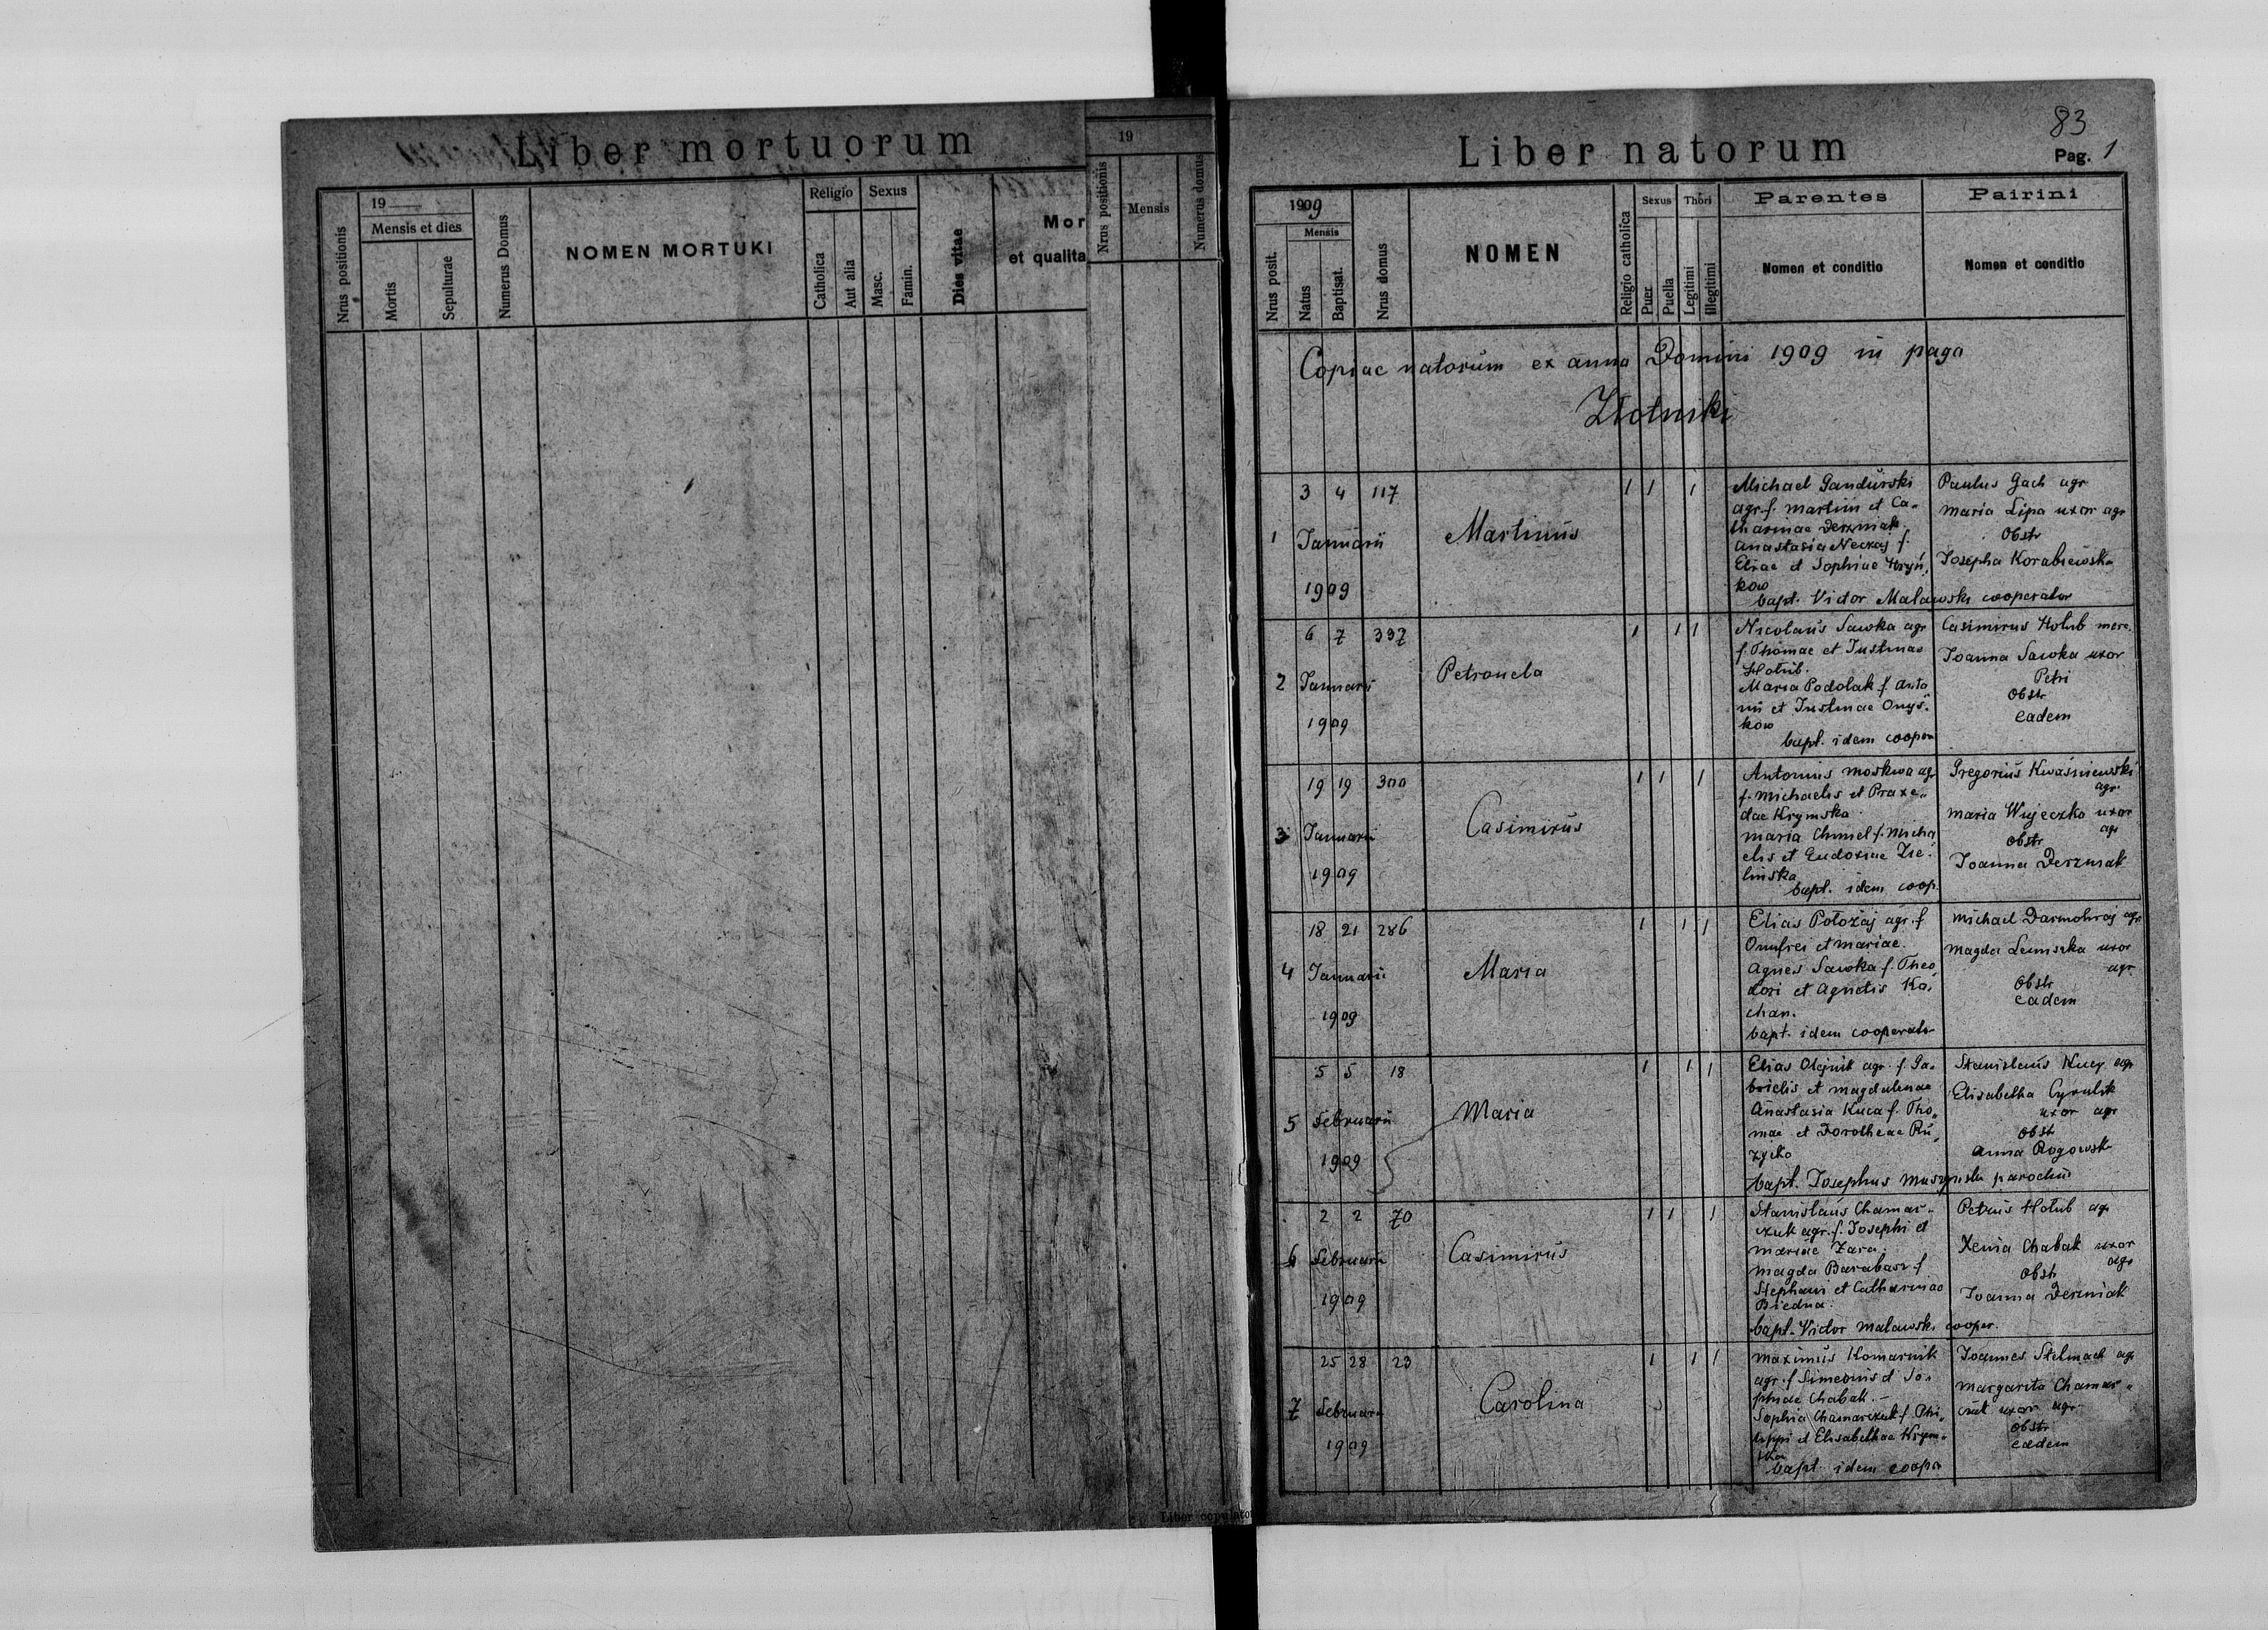 Liber mortuorum
19
Nrus positionis
Mensis et dies
Mortis
Sepulturae
Numerus Domus
NOMEN MORTUKI
Religio
Catholica
Aut alia
Sexus
Masc.
Famin.
Dies vitae
Mor
et qualita
19
Nrus positionis
Mensis
Numerus domus
Liber copulato
83
Liber natorum
Pag. 1
1909
Nrus posit.
Mensis
Natus
Baptisat.
Nrus domus
NOMEN
Religio catholica
Sexus
Puer
Puella
Thori
Legitimi
Illegitimi
Parentes
Nomen et conditio
Pairini
Nomen et conditio
Copiae natorum ex anno Domini 1909 in pago
Złotniki
3 4 117
1 Januarii
1909
Martinus
1 1 1
Michael Gandurski
agr. f. Martini et Ca-
tharinae Derzniak.
Anastasia Neczaj f.
Eliae et Sophiae Hryń,
ków
bapt. Victor Malawski cooperator
Paulus Gach agr
Maria Lipa uxor agr
Obstr
Josepha Korabiewsk
6 7 397
2 Januarii
1909
Petronela
1 1 1
Nicolaus Sawka agr
f. Thomae et Justinae
Hołub.
Maria Podolak f. Anto
nii et Justinae Onyś-
ków
bapt. idem cooper
Casimirus Hołub merc.
Joanna Sawka uxor
Petri
Obstr
eadem
19 19 300
3 Januarii
1909
Casimirus
1 1 1
Antonius Moskwa agr
f. Michaelis et Praxe,,
dae Krymska
Maria Chmel f. Micha
elis et Eudosiae Zie-
linska
bapt. idem coop.
Gregorius Kwaśniewski
agr.
Maria Wujeczko uxor
agr
Obstr
Joanna Derzniak
18 21 286
4 Januarii
1909
Maria
1 1 1
Elias Położaj agr. f
Onufrei et Mariae.
Agnes Sawka f. Theo,
dori et Agnetis Ka,
chan.
bapt. idem cooperator
Michael Darmohraj agr.
Magda Lemiszka uxor
agr.
Obstr
eadem
5 5 18
5 Februarii
1909
Maria
1 1 1
Elias Olejnik agr. f. Ga-
brielis et Magdalenae
Anastasia Kuca f. Tho,,
mae et Dorotheae Ru,
zycka
bapt. Josephus Muszynski parochus
Stanislaus Kucy agr
Elisabetha Cyrulik
uxor agr
Obstr
Anna Rogowsk
2 2 70
6 Februarii
1909
Casimirus
1 1 1
Stanislaus Chamar-
czuk agr. f. Josephi et
Mariae Zara.
Magda Barabasz f.
Stephani et Catharinae
Biedna.
bapt. Victor Malawski cooper.
Petrus Hołub agr
Xenia Chabak uxor
agr
Obstr
Joanna Derzniak
25 28 23
7 Februarii
1909
Carolina
1 1 1
Maximus Komarnik
agr. f Simeonis et So,,
phiae Chabak.-
Sophia Chamarczuk f. Phi,,
lippi et Elisabethae Krym-
ska
bapt. idem coopr
Joannes Stelmach agr
Margarita Chamar,,
czuk uxor agr.
Obstr
eadem